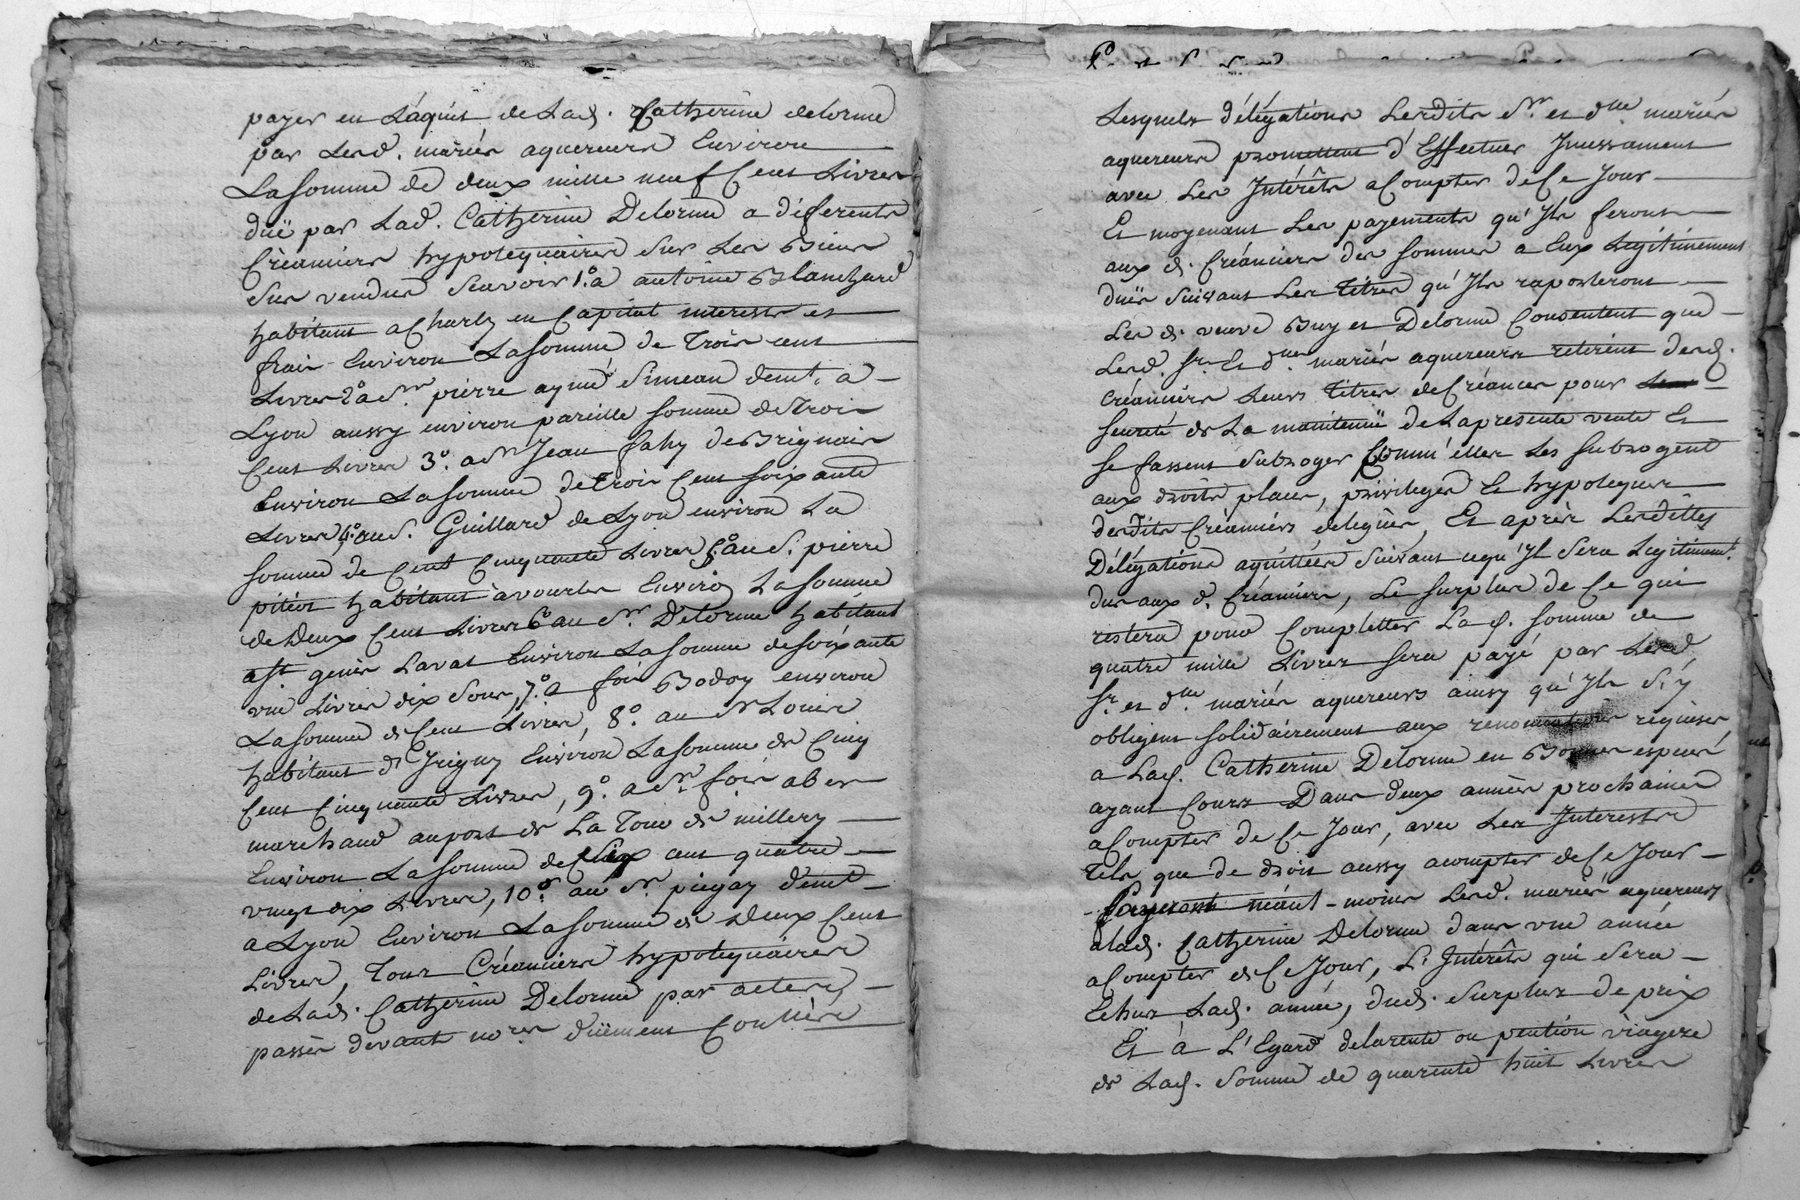 payer en L'aquit de Lad. Catherine delorme
par Lesd. mariés aquereurs Environ
La somme de deux mille neuf Cent Livres
duë par Lad. Catherine Delorme a déferents
Créanciers hypotequaires sur Les Biens
sus vendus scavoir 1°. a antoine Blanchard
habitant a Charly en Capital interests et
frais Environ La somme de Trois cent
Livres 2° a Sr. pierre aymé Simean demt. a
Lyon aussy environ pareille somme de Trois
Cent Livres 3°. a Sr Jean fahy de Brignais
Environ La somme de Trois Cent soixante
Livres 4°. au S. Guillard de Lyon environ La
somme de Cent Cinquante Livres 5° au S. pierre
pitiot habitant à vourles Environ La somme
de Deux Cent Livres 6° au Sr. Delorme habitant
a St. genis Laval Environ La somme de soixante
une Livres dix sous, 7°. a fois Bodoy environ
La somme de Cent Livres, 8°. au Sr Louis
habitant d'Irigny Environ La somme de Cinq
Cent Cinquante Livres, 9°. a Sr. fois aber
marchand au port de La Tour de millery
Environ La somme de Six cent quatre
vingt dix Livres, 10°. au Sr. piegay demt
a Lyon Environ La somme de Deux Cent
Livres, Tous Créanciers hypotequaires
de Lad. Catherine Delorme par actes
passés devant nores düement Controlés
Lesquels délégations Lesdits Sr. et dme mariés
aquereurs promettent d'Effectuer Incessament
avec Les Intérêts a Compter de Ce Jour
Et moyenant Les payements qu'Ils feront
aux d. Créanciers des sommes a Eux Legitimement
duës suivant Les Titres qu'Ils raporteront
Les d. veuve Buy et Delorme Consentent que
Lesd. Sr. Et dme. mariés aquereurs retirent desd.
Créanciers Leurs Titres de Créances pour
seureté de La manitenuë de La presente vente Et
se fassent subroger Comm'elles Les subrogent
aux droits places, privileges Et hypoteques
desdits Créanciers delegués, Et après Lesdittes
Délégations aquittées suivant ce qu'Il sera Legitimemt.
dus aux d. Créanciers, Le surplus de Ce qui
restera pour Completter La d. somme de
quatre mille Livres sera payé par Lesd.
Sr. et dme. mariés aquereurs ainsy qu'Ils s'y
obligent solidairement aux renonciations requises
a Lad. Catherine Delorme en Bonnes especes
ayant Cours Dans deux années prochaines
a Compter de Ce Jour, avec Les Interests
Tels que de droit aussy a compter de Ce Jour
Payeront néant-moins Lesd. mariés aquereurs
a lad. Catherine Delorme dans une année
a Compter de Ce Jour, L'Intérêts qui sera
Echus Lad. année, dud. surplus de prix
Et à L'Egard de la rente ou pention viagere
de Lad. somme de quarente huit Livres